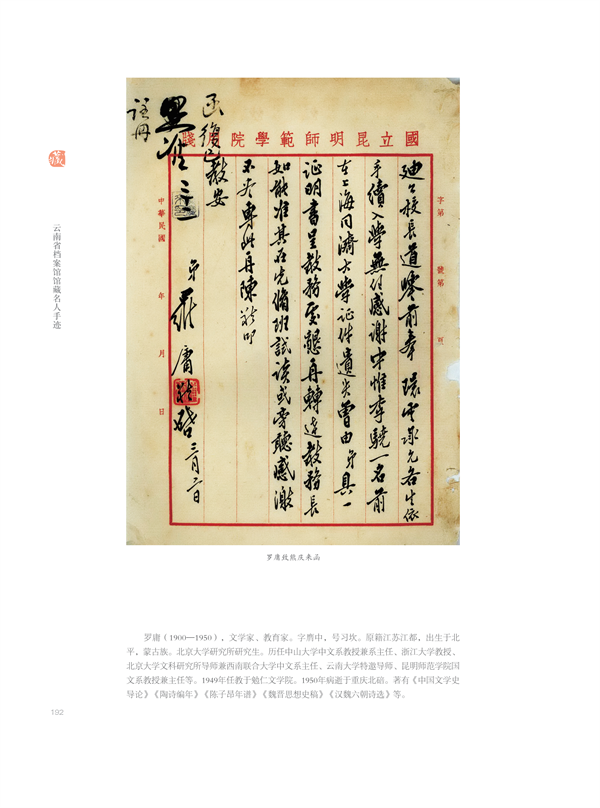 國立昆明師範學院 牋
字第 號第 頁
迪之校長道鑒前奉 環雲承允各生依
手續入學無任感謝中惟李驍一名前
在上海同濟大學証件遺失曾由弟具一
証明書呈教務處懇再轉達教務長
如能准其在先脩班試讀或旁聽感激
不盡專此再陳敬叩
函復 教安
弟 羅庸 敬啓 二月二日
照准
註冊
中華民國 年 月 日
云南省档案馆馆藏名人手迹
罗庸致熊庆来函
罗庸（1900—1950），文学家、教育家。字膺中，号习坎。原籍江苏江都，出生于北
平，蒙古族。北京大学研究所研究生。历任中山大学中文系教授兼系主任、浙江大学教授、
北京大学文科研究所导师兼西南联合大学中文系主任、云南大学特邀导师、昆明师范学院国
文系教授兼主任等。1949年任教于勉仁文学院。1950年病逝于重庆北碚。著有《中国文学史
导论》《陶诗编年》《陈子昂年谱》《魏晋思想史稿》《汉魏六朝诗选》等。
192